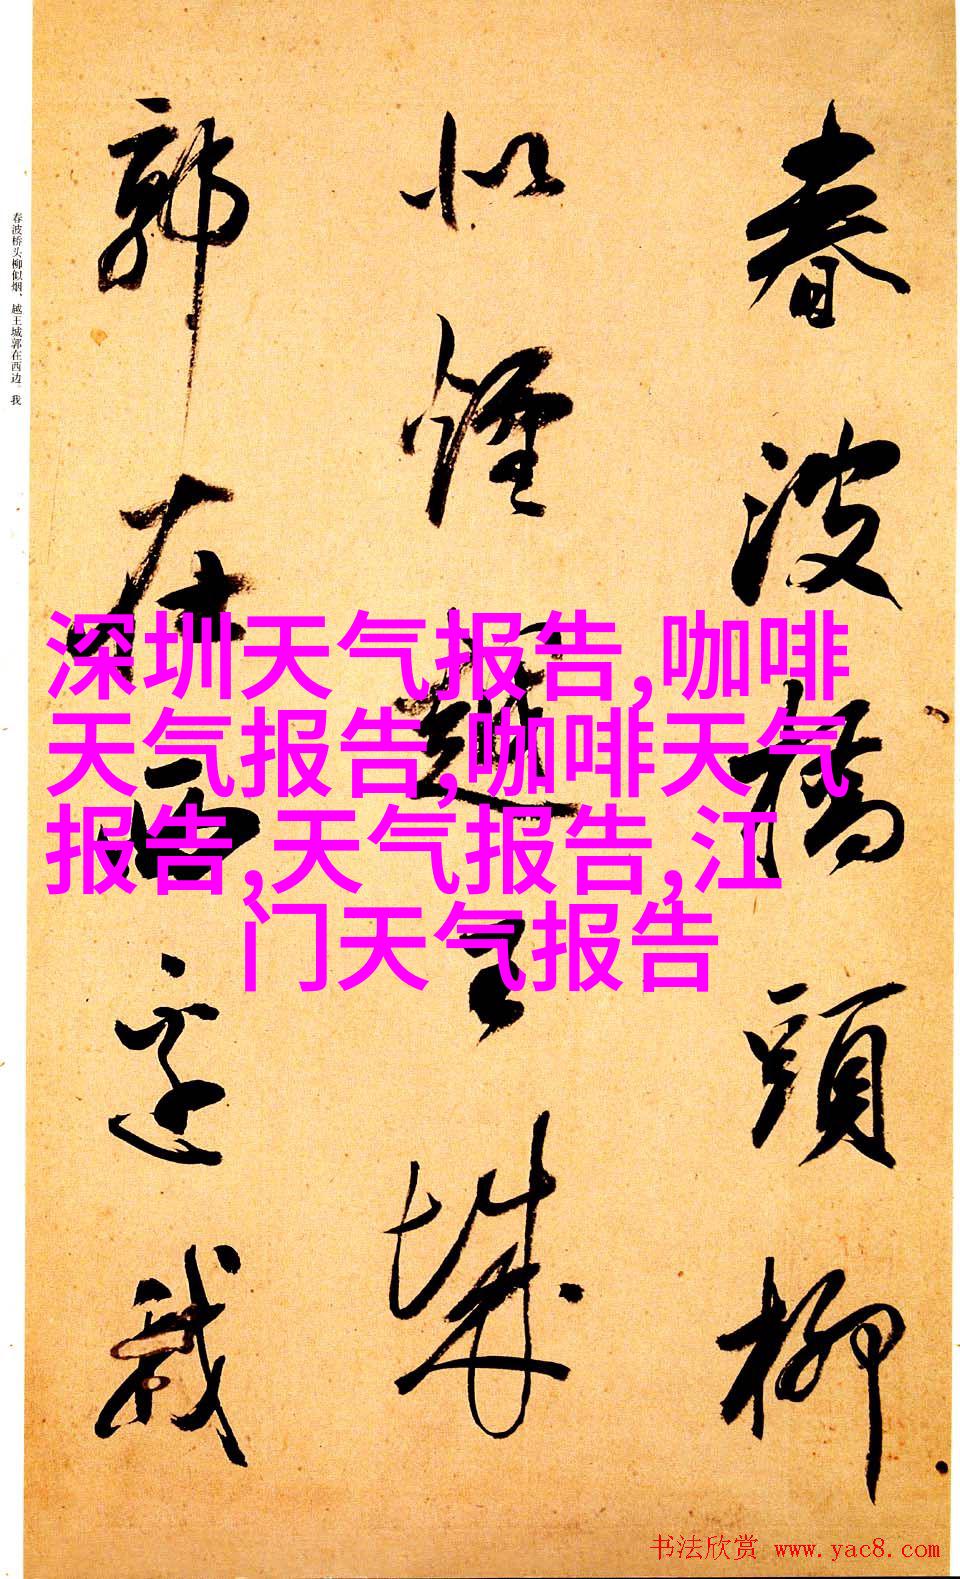 春波橋頭柳
似煙越王城
郭在西邊我
春波桥头柳似烟、越王城郭在西边。我
深圳天气报告,咖啡
天气报告,咖啡天气
报告,天气报告,江
门天气报告
书法欣赏 www.yac8.com